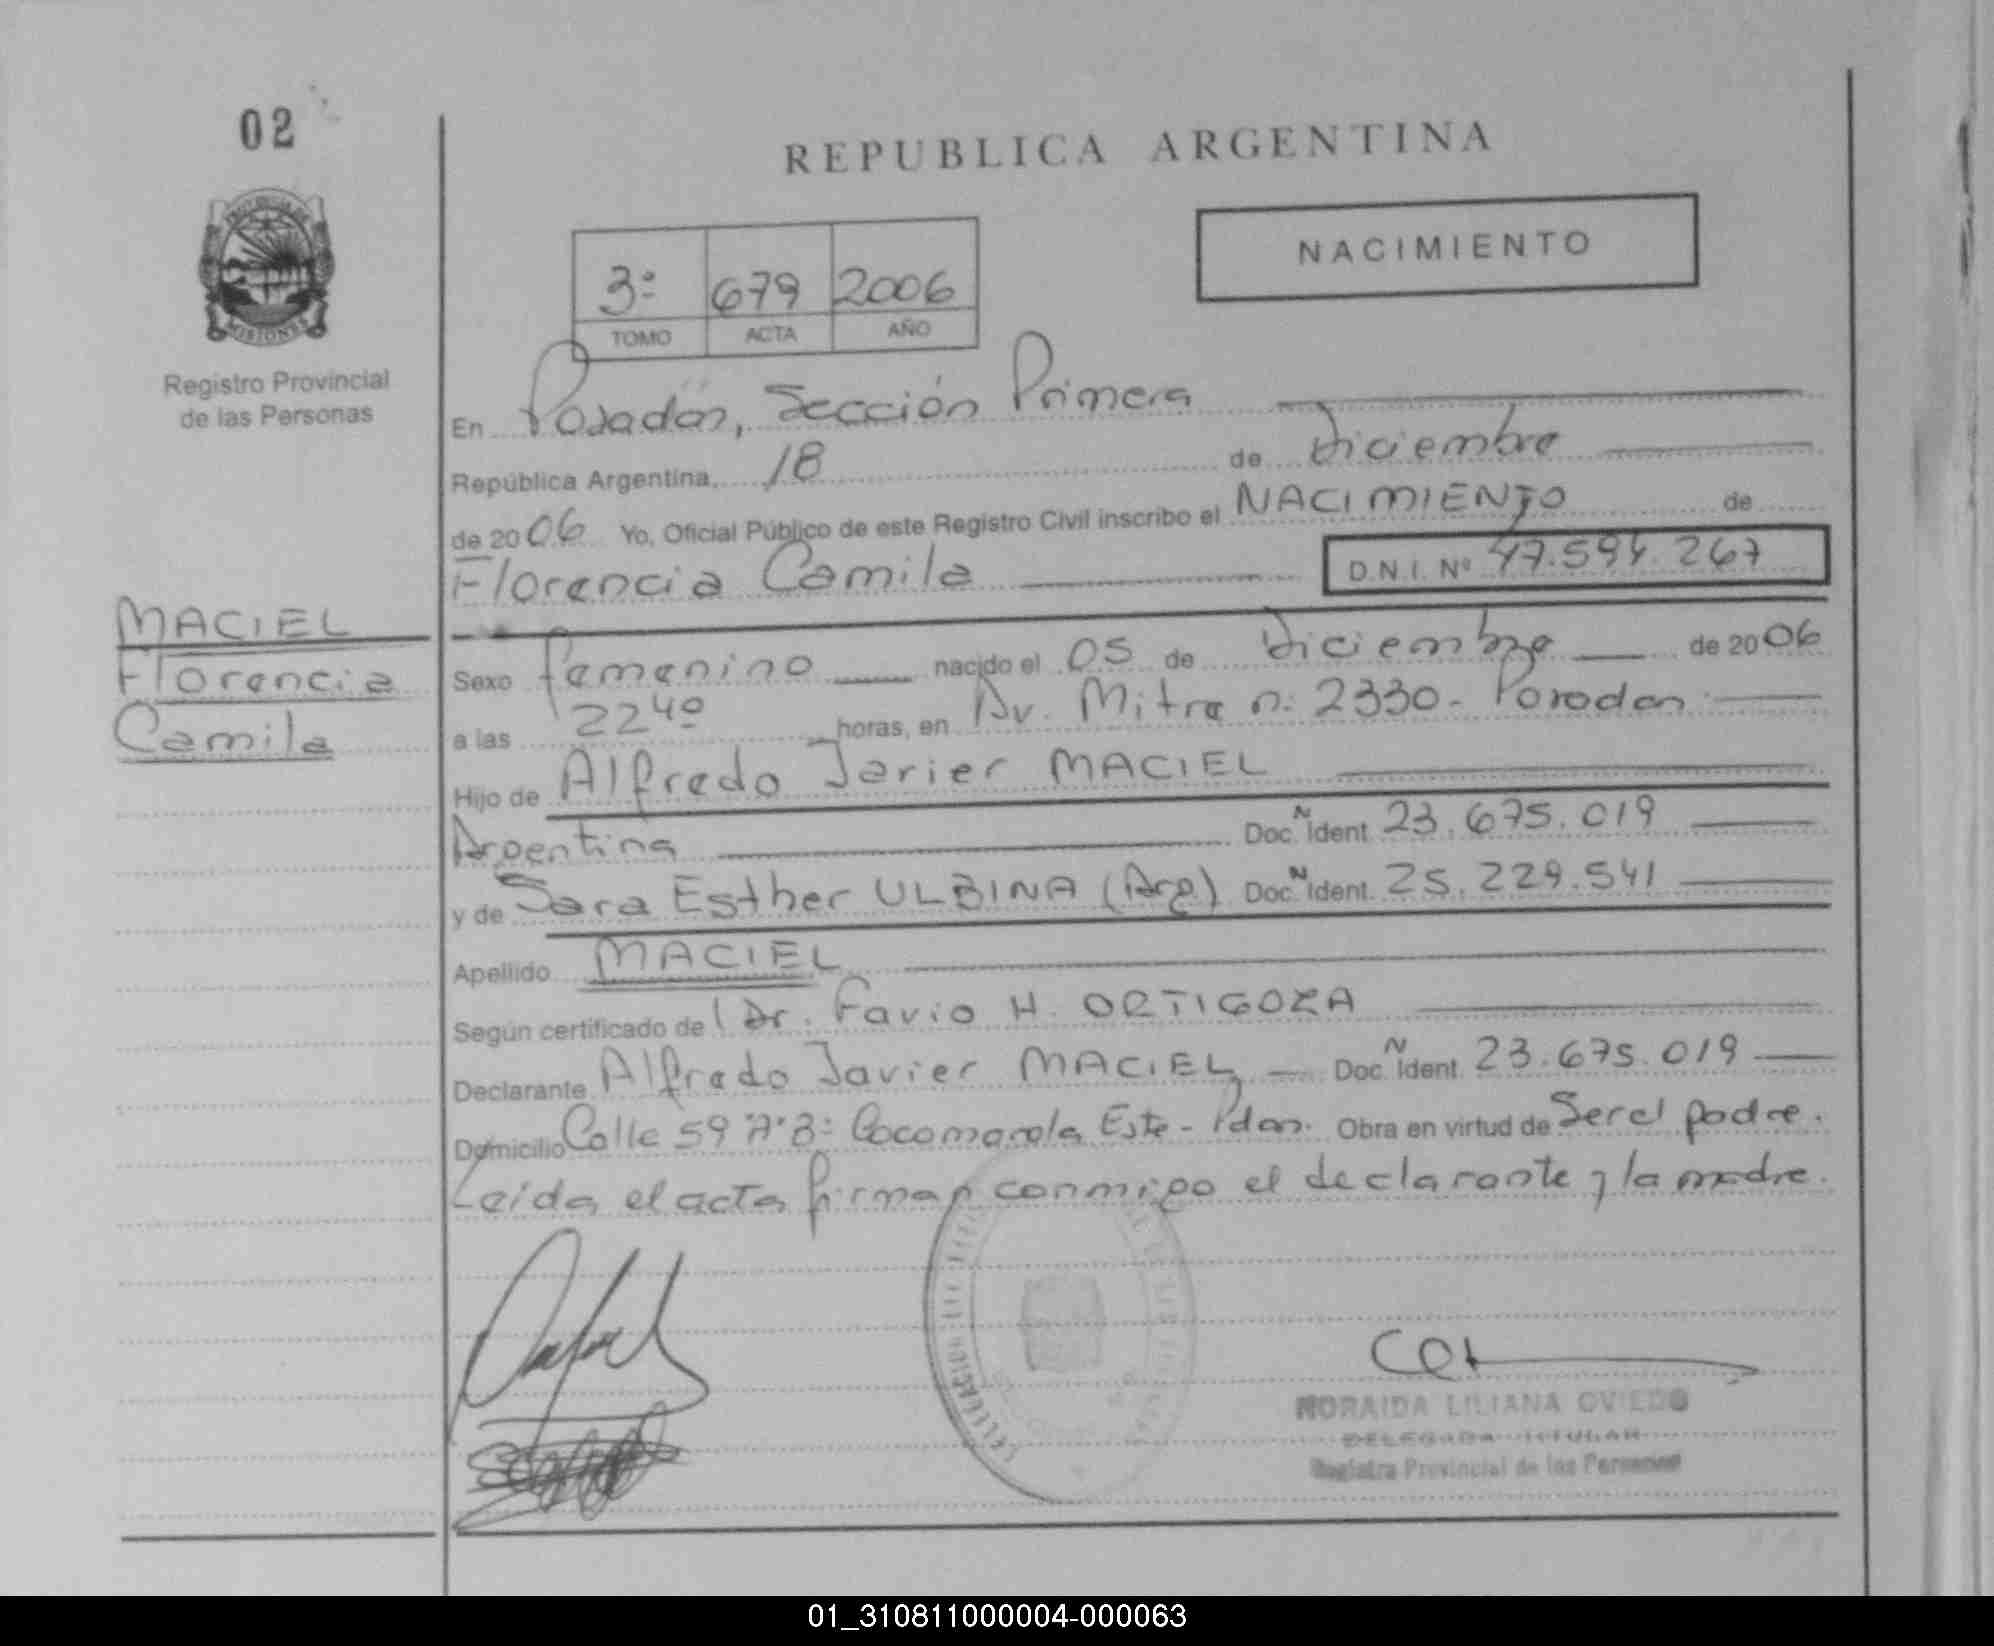 02
PROVINCIA DE
MISIONES
Registro Provincial
de las Personas
REPUBLICA ARGENTINA
NACIMIENTO
3º 679 2006
TOMO ACTA AÑO
En Posadas, Sección Primera
República Argentina, 18 de Diciembre
de 2006 Yo, Oficial Público de este Registro Civil inscribo el NACIMIENTO de
Florencia Camila D.N.I. Nº 47.594.267
MACIEL
Florencia
Camila
Sexo femenino nacido el 05 de Diciembre de 2006
a las 22⁴⁰ horas, en Av. Mitre n: 2330- Posadas
Hijo de Alfredo Javier MACIEL
Argentina Doc. N Ident 23.675.019
y de Sara Esther ULBINA (Arg) Doc. N Ident. 25.229.541
Apellido MACIEL
Según certificado de Dr. Favio H. ORTIGOZA
Declarante Alfredo Javier MACIEL Doc. N Ident 23.675.019
Domicilio Calle 59 Cocomarola Este - Pdas. Obra en virtud de Ser el padre.
Leida el acta firman conmigo el declarante y la madre.
NORAIDA LILIANA OVIEDO
DELEGADA TITULAR
Registro Provincial de las Personas
01_310811000004-000063